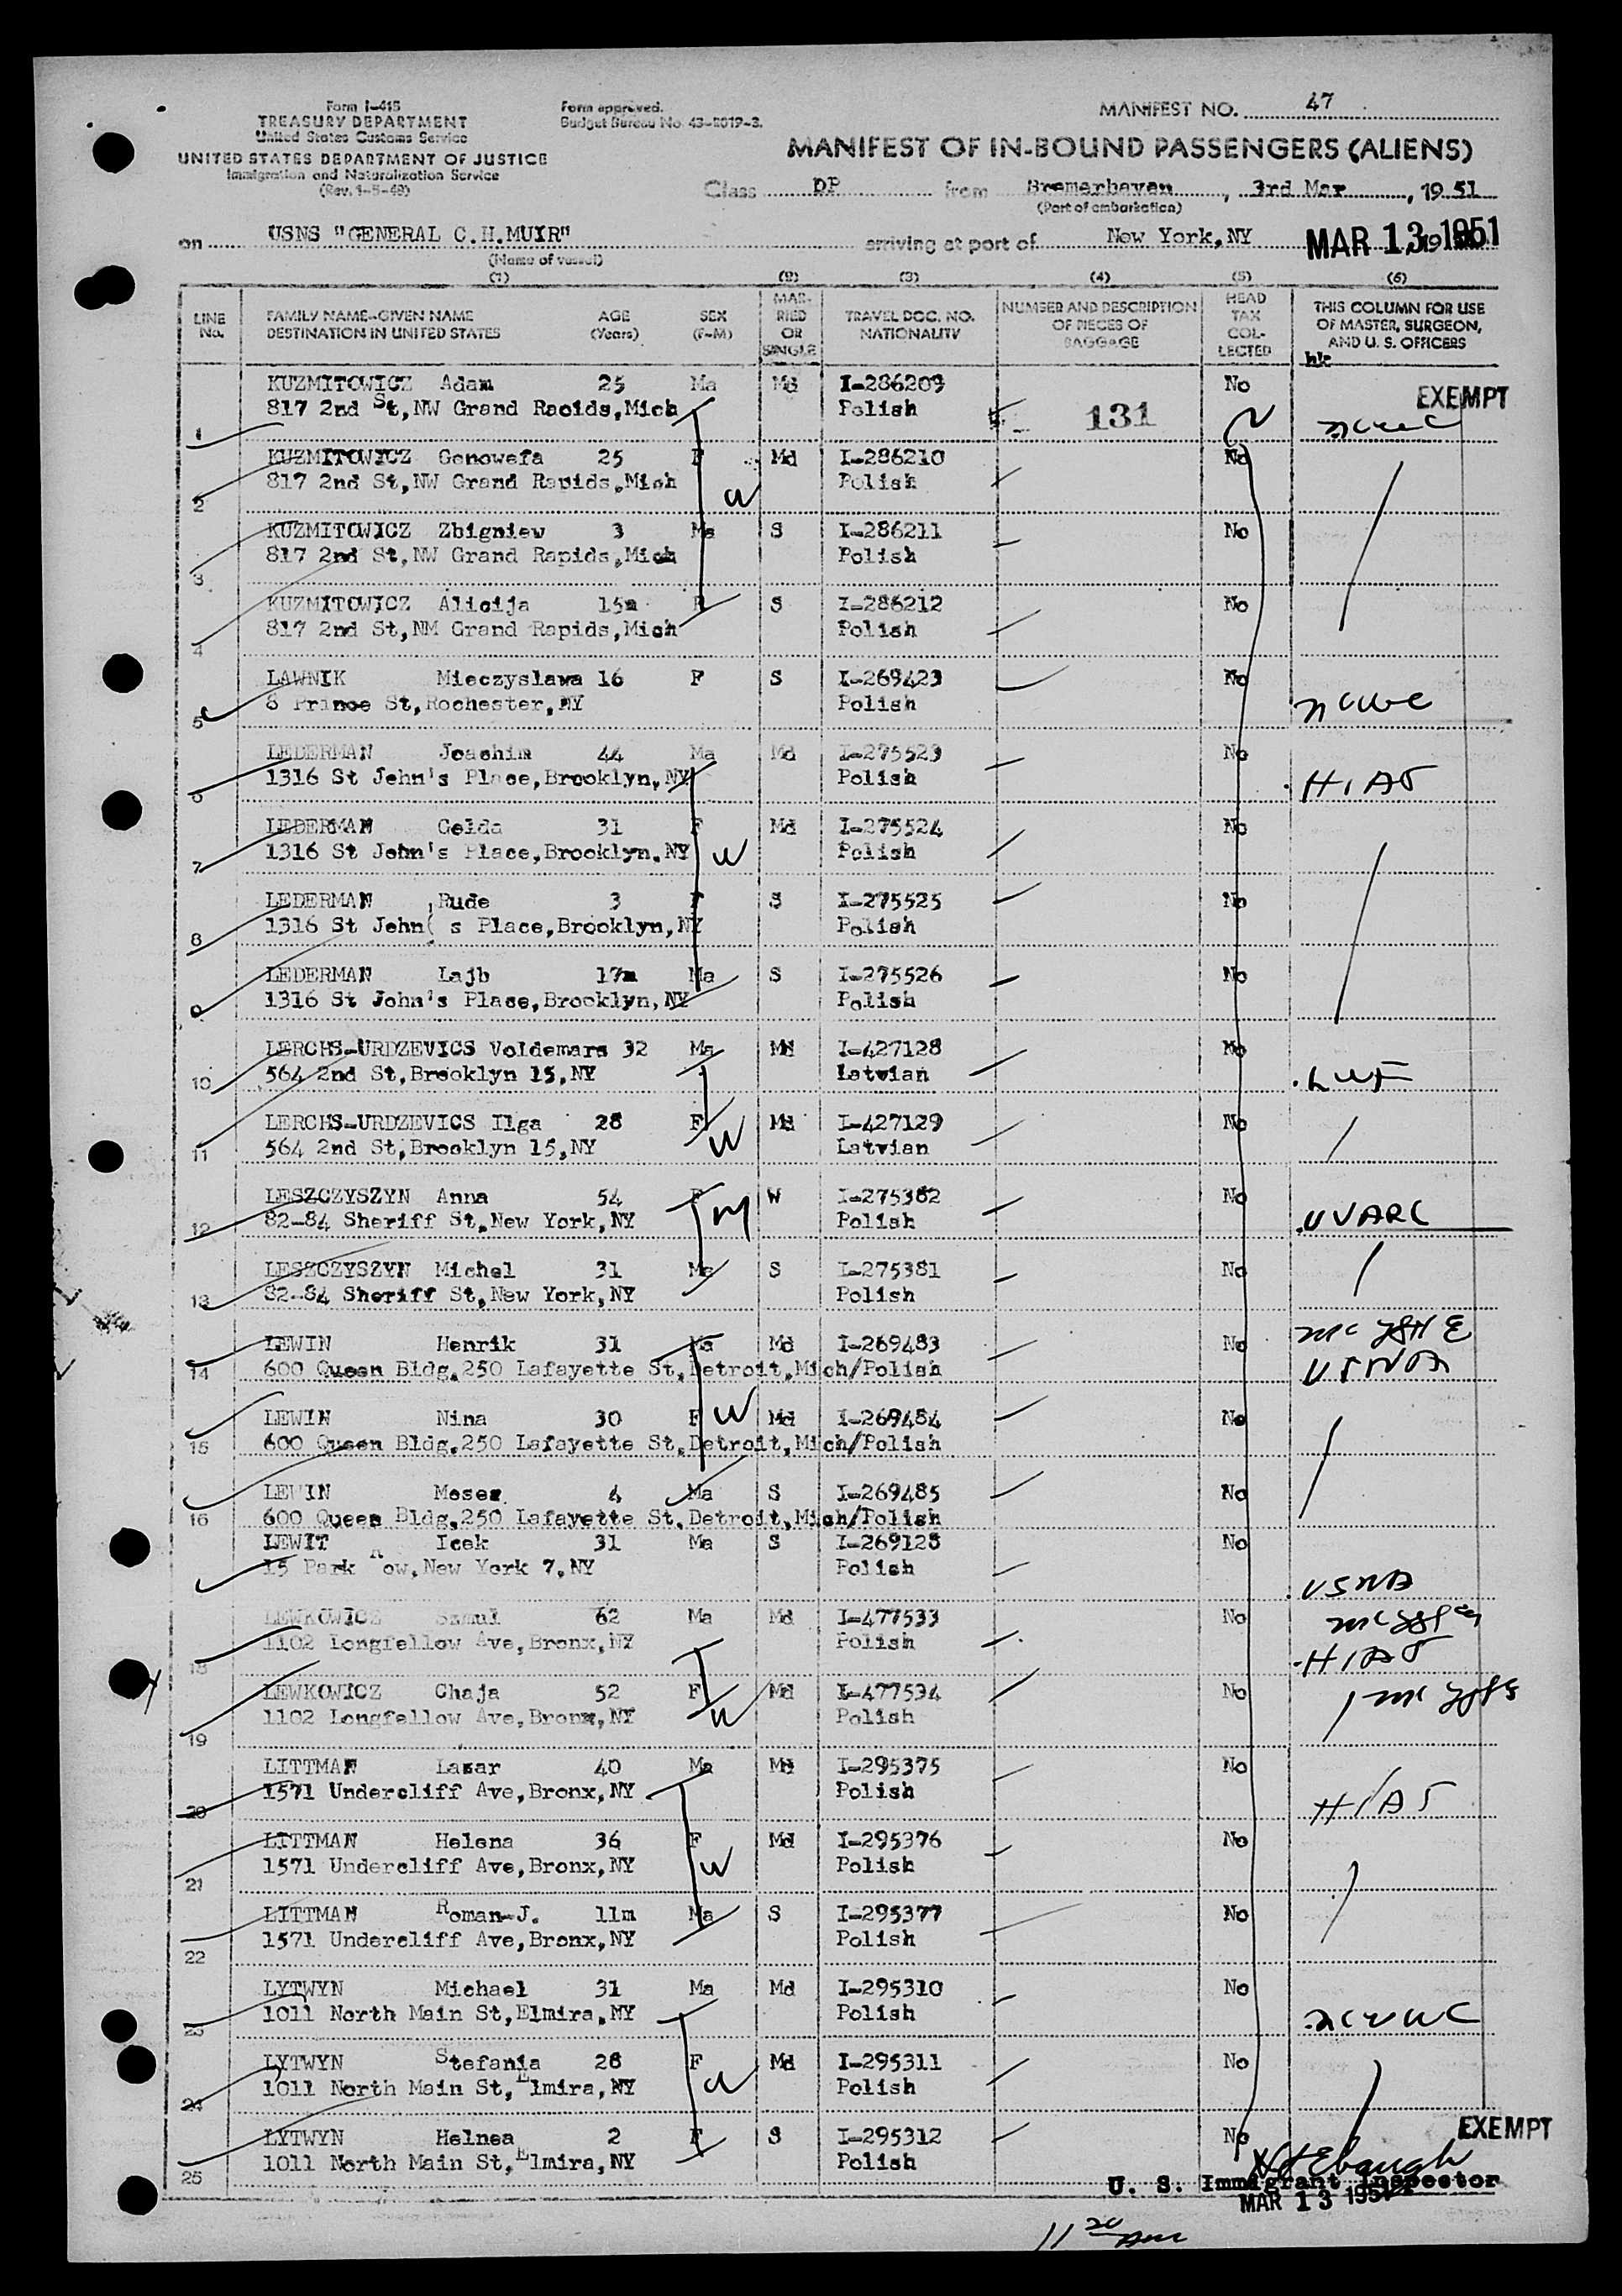 Form I-415
TREASURY DEPARTMENT
United States Customs Service
UNITED STATES DEPARTMENT OF JUSTICE
Immigration and Naturalization Service
(Rev. 1-5-48)
Form approved.
Budget Bureau No. 43-R019-3.
MANIFEST NO. 47
MANIFEST OF IN-BOUND PASSENGERS (ALIENS)
Class DP from Bremerhaven, 3rd Mar, 19 51
(Port of embarkation)
on USNS "GENERAL C.H.MUIR" arriving at port of New York,NY MAR 13 1951
(Name of vessel)
(1) (2) (3) (4) (5) (6)
LINE No. FAMILY NAME-GIVEN NAME DESTINATION IN UNITED STATES AGE (Years) SEX (F-M) MARRIED OR SINGLE TRAVEL DOC. NO. NATIONALITY NUMBER AND DESCRIPTION OF PIECES OF BAGGAGE HEAD TAX COLLECTED THIS COLUMN FOR USE OF MASTER, SURGEON, AND U. S. OFFICERS
KUZMITOWICZ Adam 25 Ma Md I-286209 No EXEMPT
1 817 2nd St,NW Grand Racids,Mich Polish 131 ncwc
KUZMITOWICZ Genowefa 25 F Md I-286210 No
2 817 2nd St,NW Grand Rapids,Mich Polish
KUZMITOWICZ Zbigniew 3 Ma S I-286211 No
3 817 2nd St,NW Grand Rapids,Mich Polish
KUZMITOWICZ Alicija 15m F S I-286212 No
4 817 2nd St,NM Grand Rapids,Mich Polish
LAWNIK Mieczyslawa 16 F S I-269423 No
5 8 Prince St,Rochester,NY Polish ncwc
LEDERMAN Joachim 44 Ma Md I-275523 No
6 1316 St John's Place,Brooklyn,NY Polish HIAS
LEDERMAN Gelda 31 F Md I-275524 No
7 1316 St John's Place,Brooklyn,NY Polish
LEDERMAN Rude 3 F S I-275525 No
8 1316 St John( s Place,Brooklyn,NY Polish
LEDERMAN Lajb 17m Ma S I-275526 No
9 1316 St John's Place,Brooklyn,NY Polish
LERCHS-URDZEVICS Voldemars 32 Ma Md I-427128 No
10 564 2nd St,Brooklyn 15,NY Latvian LWF
LERCHS-URDZEVICS Ilga 28 F Md I-427129 No
11 564 2nd St,Brooklyn 15,NY Latvian
LESZCZYSZYN Anna 54 F W I-275382 No
12 82-84 Sheriff St,New York,NY Polish UUARC
LESZCZYSZYN Michel 31 Ma S I-275381 No
13 82-84 Sheriff St,New York,NY Polish
LEWIN Henrik 31 Ma Md I-269483 No
14 600 Queen Bldg,250 Lafayette St,Detroit,Mich/Polish USNA
LEWIN Nina 30 F Md I-269484 No
15 600 Queen Bldg,250 Lafayette St,Detroit,Mich/Polish
LEWIN Moses 4 Ma S I-269485 No
16 600 Queen Bldg,250 Lafayette St,Detroit,Mich/Polish
LEWIT Icek 31 Ma S I-269128 No
15 Park Row,New York 7,NY Polish USNA
LEWKOWICZ Szmul 62 Ma Md I-477533 No
18 1102 Longfellow Ave,Bronx,NY Polish HIAS
LEWKOWICZ Chaja 52 F Md I-477534 No
19 1102 Longfellow Ave,Bronx,NY Polish
LITTMAN Lazar 40 Ma Md I-295375 No
20 1571 Undercliff Ave,Bronx,NY Polish HIAS
LITTMAN Helena 36 F Md I-295376 No
21 1571 Undercliff Ave,Bronx,NY Polish
LITTMAN Roman-J. 11m Ma S I-295377 No
22 1571 Undercliff Ave,Bronx,NY Polish
LYTWYN Michael 31 Ma Md I-295310 No
23 1011 North Main St,Elmira,NY Polish ncwc
LYTWYN Stefania 28 F Md I-295311 No
24 1011 North Main St,Elmira,NY Polish
LYTWYN Helnea 2 F S I-295312 No EXEMPT
25 1011 North Main St,Elmira,NY Polish
U. S. Immigrant Inspector
MAR 13 1951